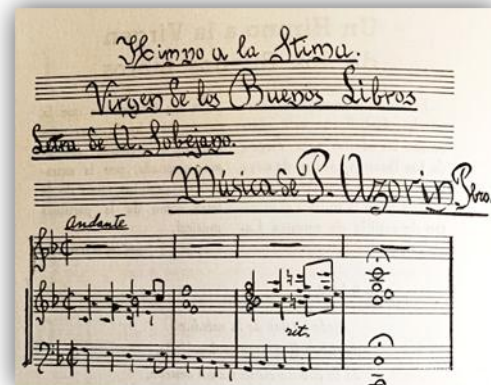 Himno a la Stima.
Virgen de los Buenos Libros
Letra de A. Sobejano.
Música de P. Azorin, Pbro.
Andante
rit.